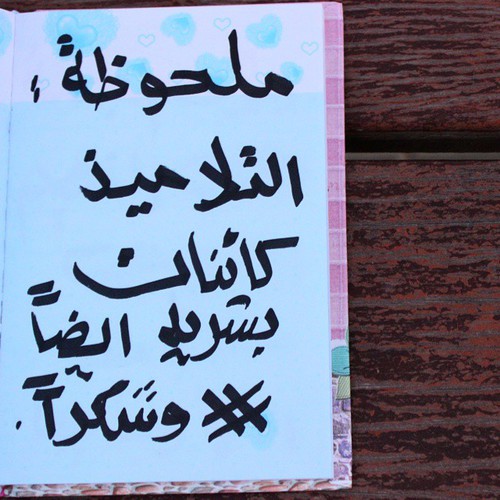 ملحوظةٌ :
التلاميذ
كائنات
بشرية ايضاً
# وشكراً .